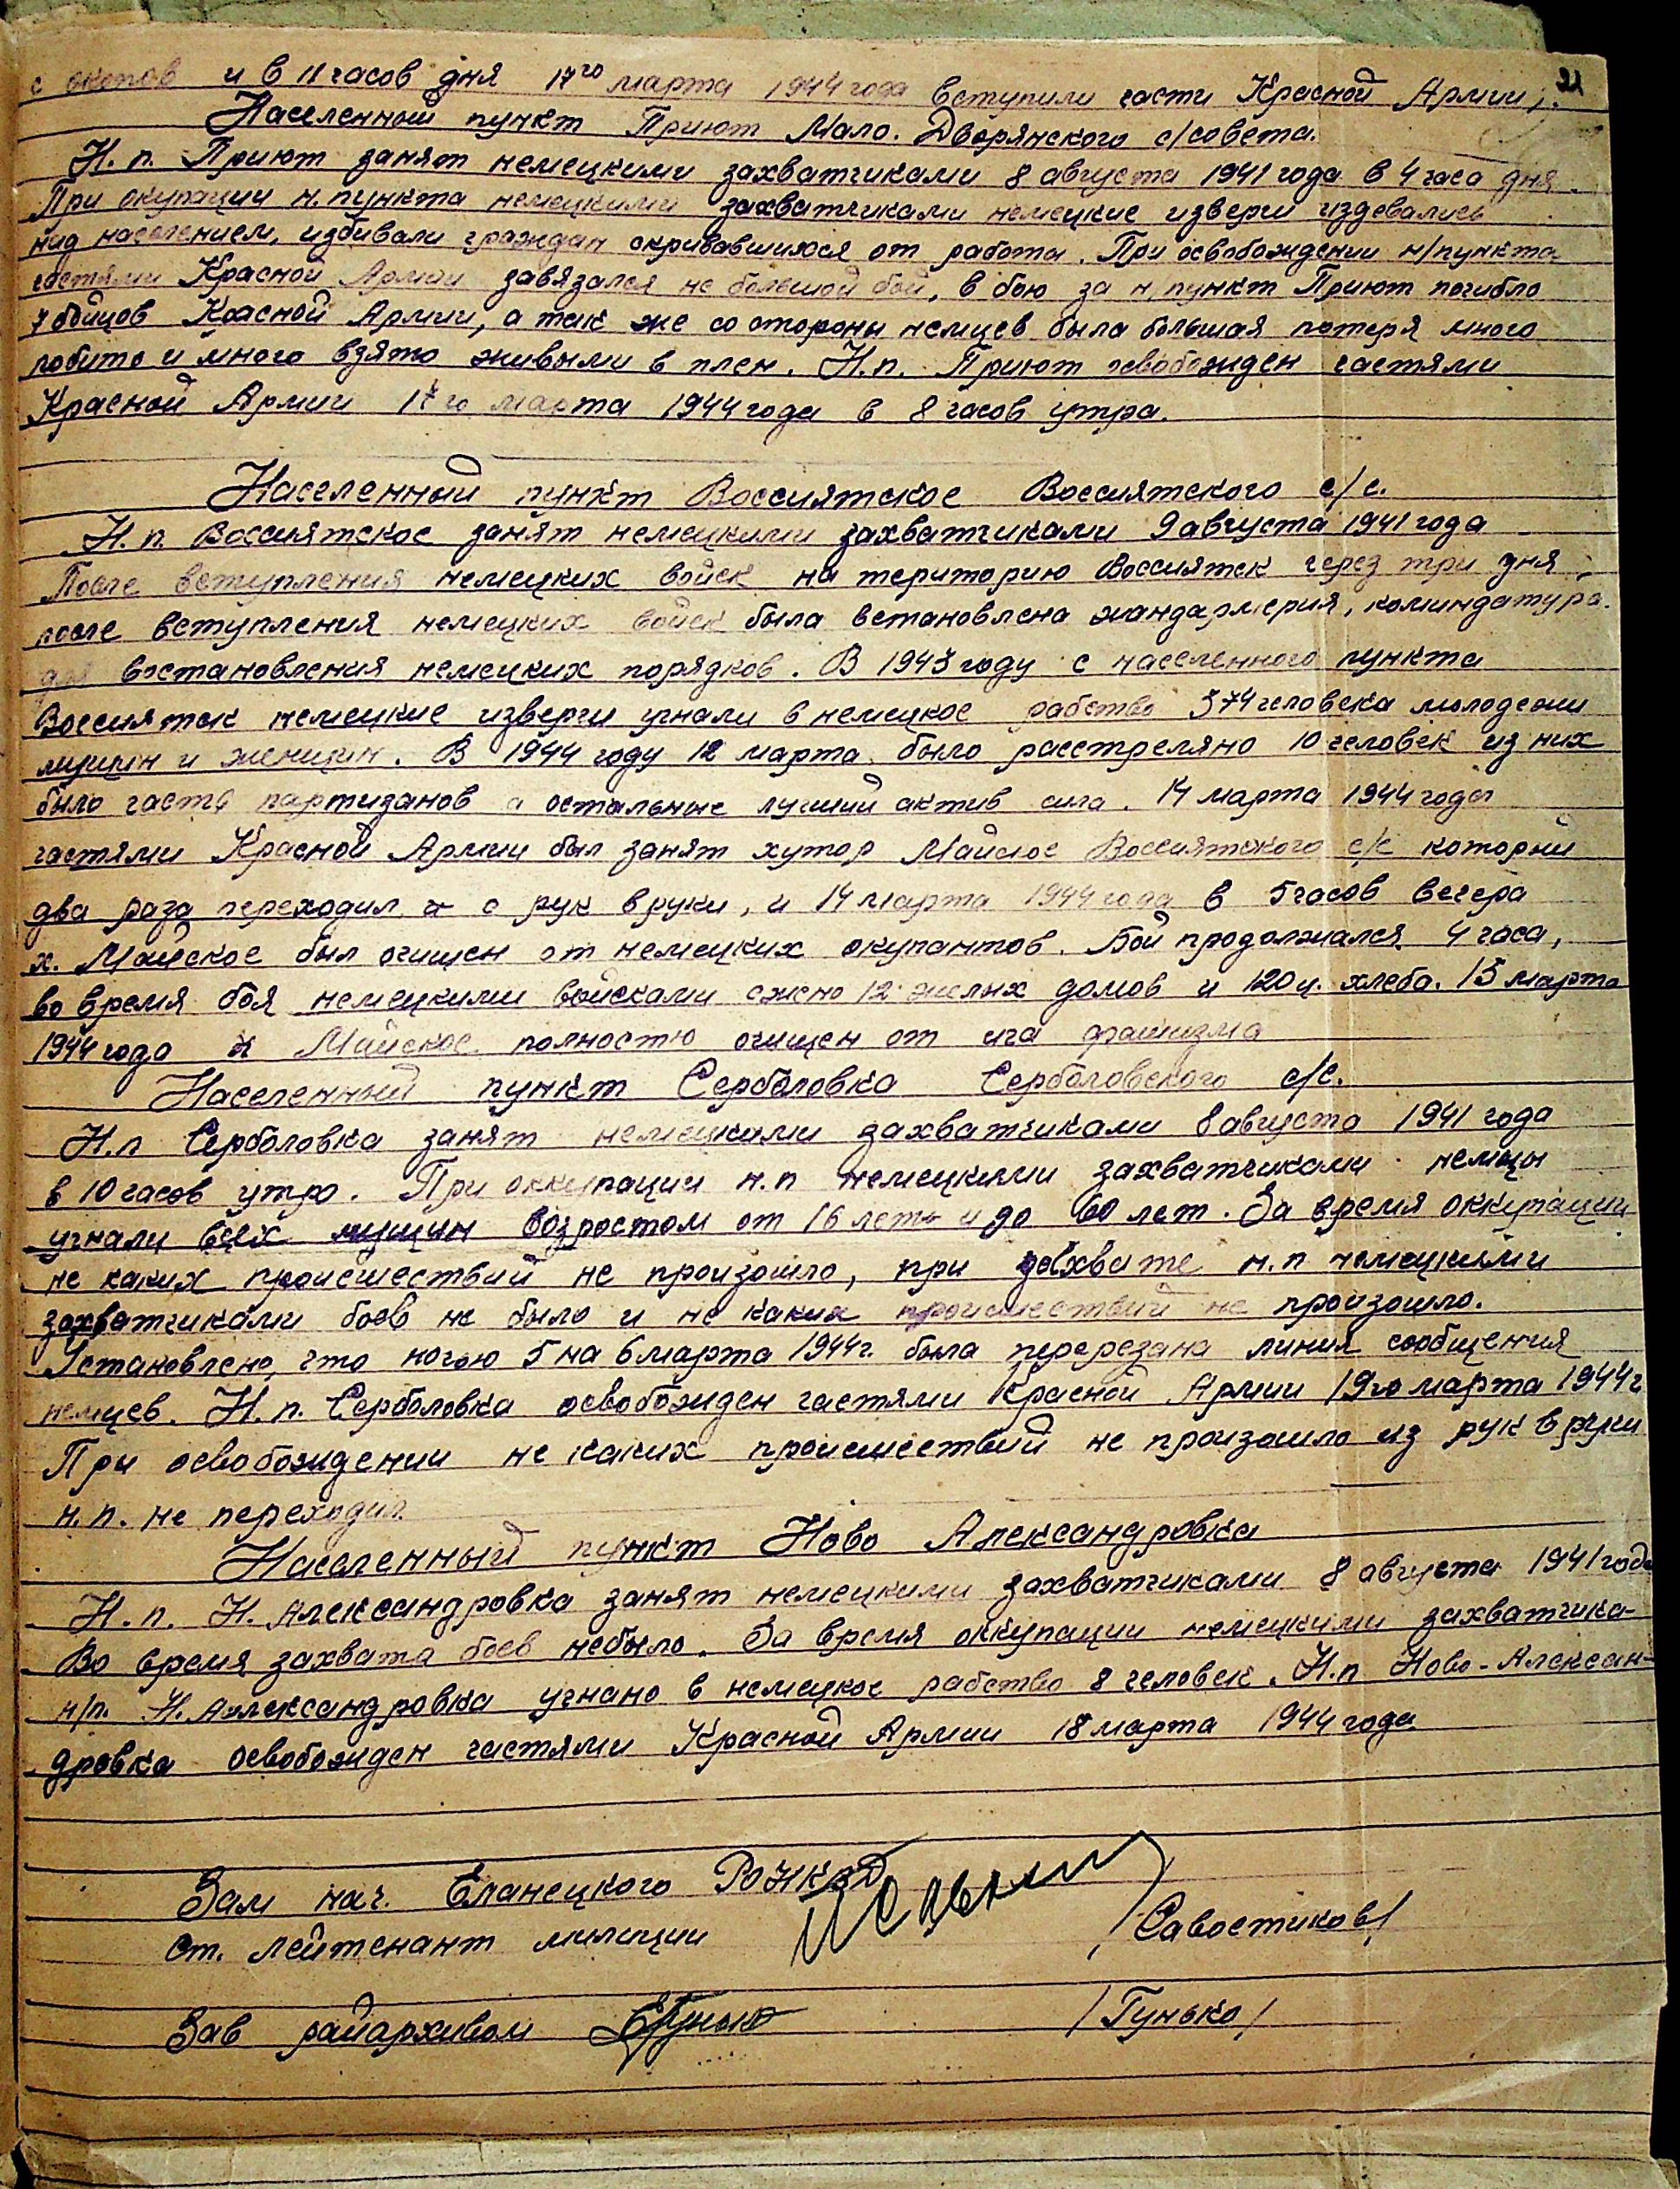 21
с окопов и в 11 часов дня 17го марта 1944 года вступили части Красной Армии.
Населенный пункт Приют Мало. Дворянского с/совета.
Н. п. Приют занят немецкими захватчиками 8 августа 1941 года в 4 часа дня.
При окупации н. пункта немецкими захватчиками немецкие изверги издевались
над населением, избивали граждан скрывавшихся от работы. При освобождении н/пункта
частями Красной Армии завязался не большой бой, в бою за н. пункт Приют погибло
7 бойцов Красной Армии, а так же со стороны немцев была большая потеря много
побито и много взято живыми в плен. Н. п. Приют освобожден частями
Красной Армии 17го марта 1944 года в 8 часов утра.
Населенный пункт Воссиятское Воссиятского с/с.
Н. п. Воссиятское занят немецкими захватчиками 9 августа 1941 года
После вступления немецких войск на територию Воссиятск через три дня
после вступления немецких войск была встановлена жандармерия, коминдатура.
для востановления немецких порядков. В 1943 году с населенного пункта
Воссиятск немецкие изверги угнали в немецкое рабство 374 человека молодежи
мущин и женщин. В 1944 году 12 марта было расстреляно 10 человек из них
было часть партизанов а остальные лучший актив села. 14 марта 1944 года
частями Красной Армии был занят хутор Майское Воссиятского с/с который
два раза переходил с рук в руки, и 14 марта 1944 года в 5 часов вечера
х. Майское был очищен от немецких окупантов. Бой продолжался 4 часа,
во время боя немецкими войсками сжено 12 жилых домов и 120 ц. хлеба. 15 марта
1944 года х Майское полностью очищен от ига фашизма
Населенный пункт Серболовка Серболовского с/с.
Н. п Серболовка занят немецкими захватчиками 8 августа 1941 года
в 10 часов утра. При оккупации н. п немецкими захватчиками немцы
угнали всех мущин возростом от 16 лет и до 60 лет. За время оккупации
не каких происшествий не произошло, при захвате н. п немецкими
захватчиками боев не было и не каких происшествий не произошло.
Установлено, что ночью 5 на 6 марта 1944 г. была перерезана линия сообщения
немцев. Н. п. Серболовка освобожден частями Красной Армии 19го марта 1944 г
При освобождении не каких происшествий не произошло из рук в руки
н. п. не переходил.
Населенный пункт Ново Александровка
Н. п. Н. Александровка занят немецкими захватчиками 8 августа 1941 года
Во время захвата боев небыло. За время оккупации немецкими захватчика-
н/п. Н. Александровка угнано в немецкое рабство 8 человек. Н. п Ново-Алексан-
дровка освобожден частями Красной Армии 18 марта 1944 года
Зам нач. Еланецкого РОНКВД
ст. лейтенант милиции /Савостиков/
Зав райархивом /Гунько/